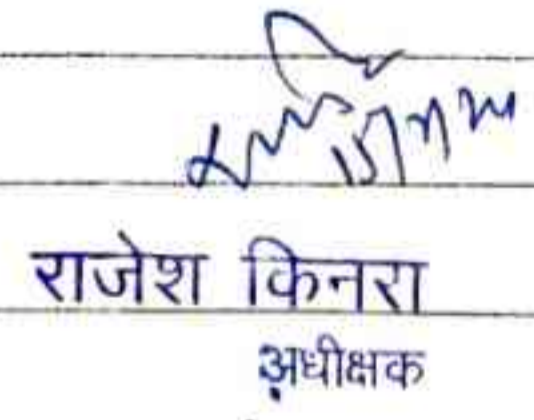 राजेश किनरा
अधीक्षक